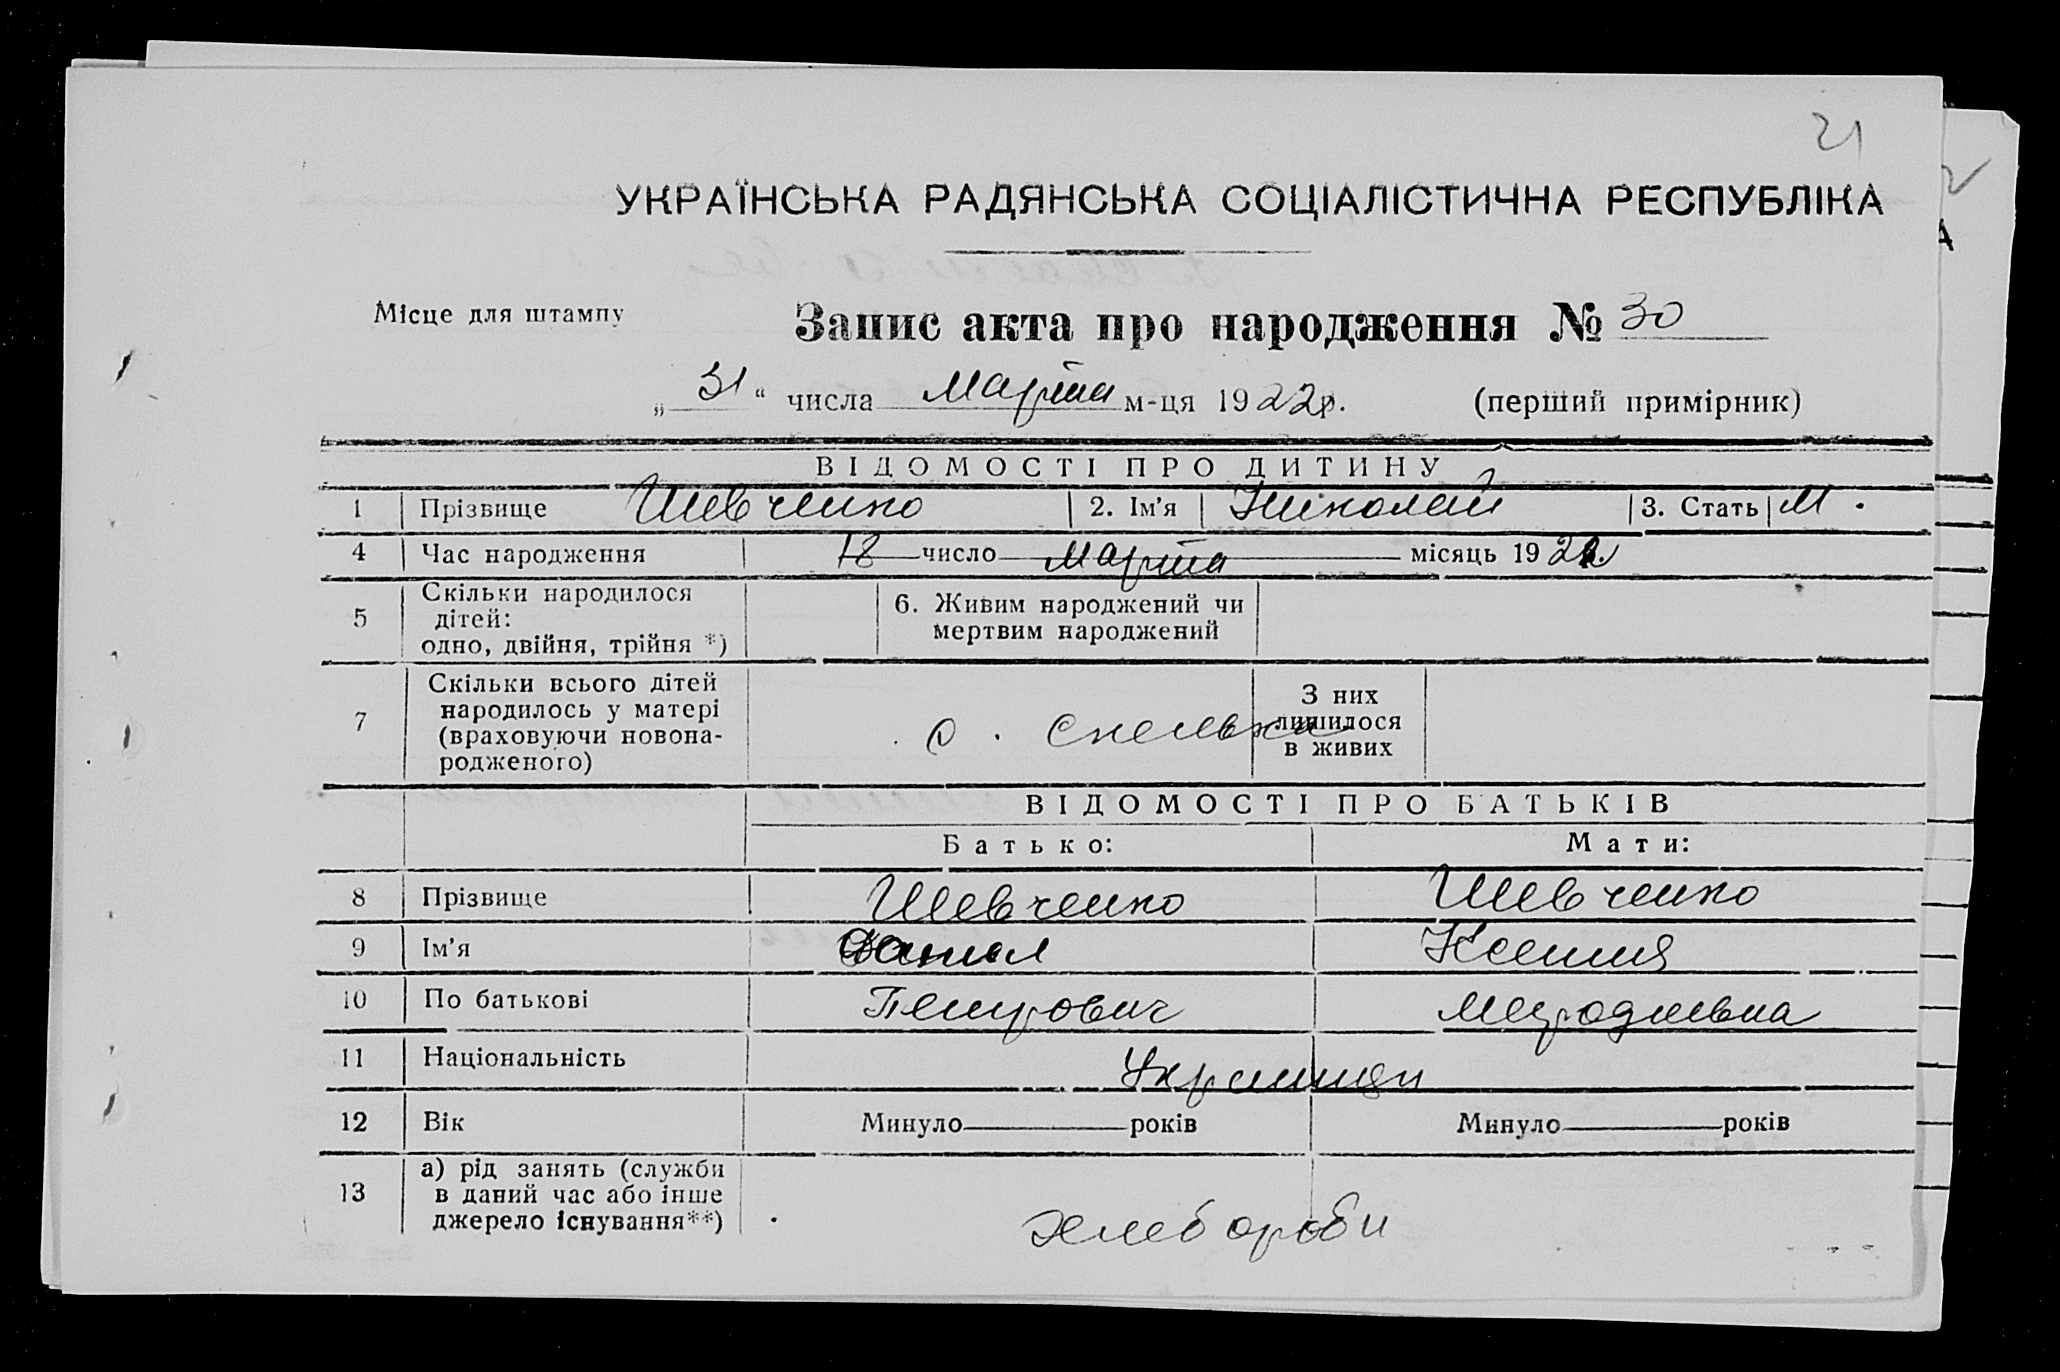 21
УКРАЇНСЬКА РАДЯНСЬКА СОЦІАЛІСТИЧНА РЕСПУБЛІКА
Місце для штампу
Запис акта про народження № 30
„ 31 “ числа Марта м-ця 1922р. (перший примірник)
ВІДОМОСТІ ПРО ДИТИНУ
1 Прізвище Шевченко 2. Ім’я Николай 3. Стать М.
4 Час народження 18 число Марта місяць 1922
5 Скільки народилося дітей: одно, двійня, трійня *) 6. Живим народжений чи мертвим народжений
7 Скільки всього дітей народилось у матері (враховуючи новонародженого) с. З них лишилося в живих
ВІДОМОСТІ ПРО БАТЬКІВ
Батько: Мати:
8 Прізвище Шевченко Шевченко
9 Ім’я Данил Ксения
10 По батькові Петрович
11 Національність Украинци
12 Вік Минуло років Минуло років
13 а) рід занять (служби в даний час або інше джерело існування**) Хлебороби